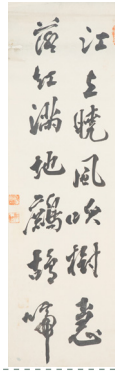 江上曉風吹樹急
落紅滿地鷓鴣啼